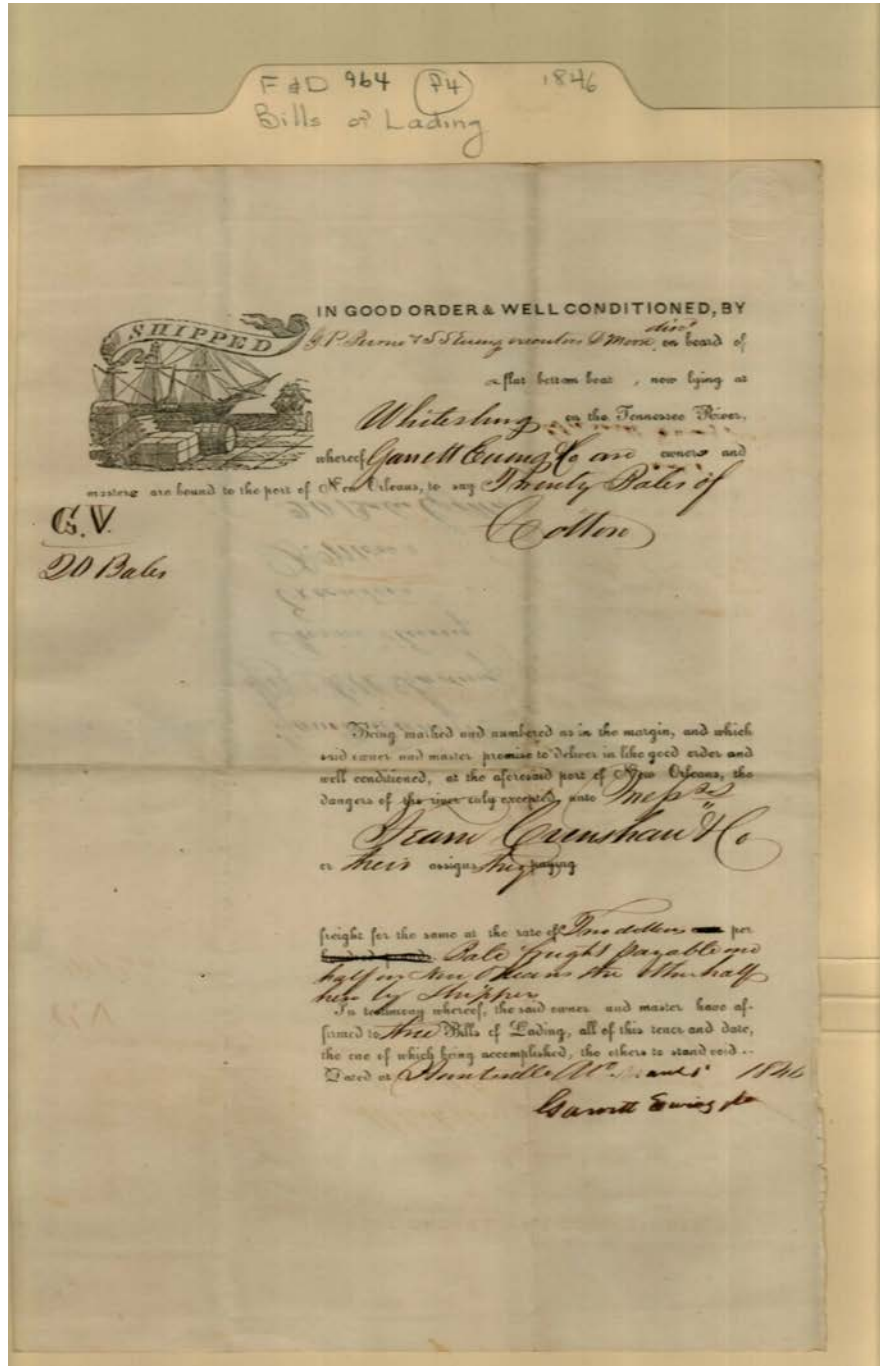 F & D 964 (P4) 1846
Bills of Lading
SHIPPED
IN GOOD ORDER & WELL CONDITIONED, BY
G. P. & S S Ewing executors D Moore decd on board of
a flat bottom boat, now lying at
Whitesburg on the Tennessee River,
whereof Garrett Ewing & Co are owners and
masters are bound to the port of New Orleans, to say Twenty Bales of
Cotton
G.V.
20 Bales
Being marked and numbered as in the margin, and which
said owner and master promise to deliver in like good order and
well conditioned, at the aforesaid port of New Orleans, the
dangers of the river only excepted, unto Messrs
Fearn Crenshaw & Co
or their assigns they paying
freight for the same at the rate of Two dollars per
Bale freight payable one
half in New Orleans the other half
here by Shipper
In testimony whereof, the said owner and master have af-
firmed to three Bills of Lading, all of this tenor and date,
the one of which being accomplished, the others to stand void..
Dated at Huntsville Al. 1846
Garrett Ewing & Co